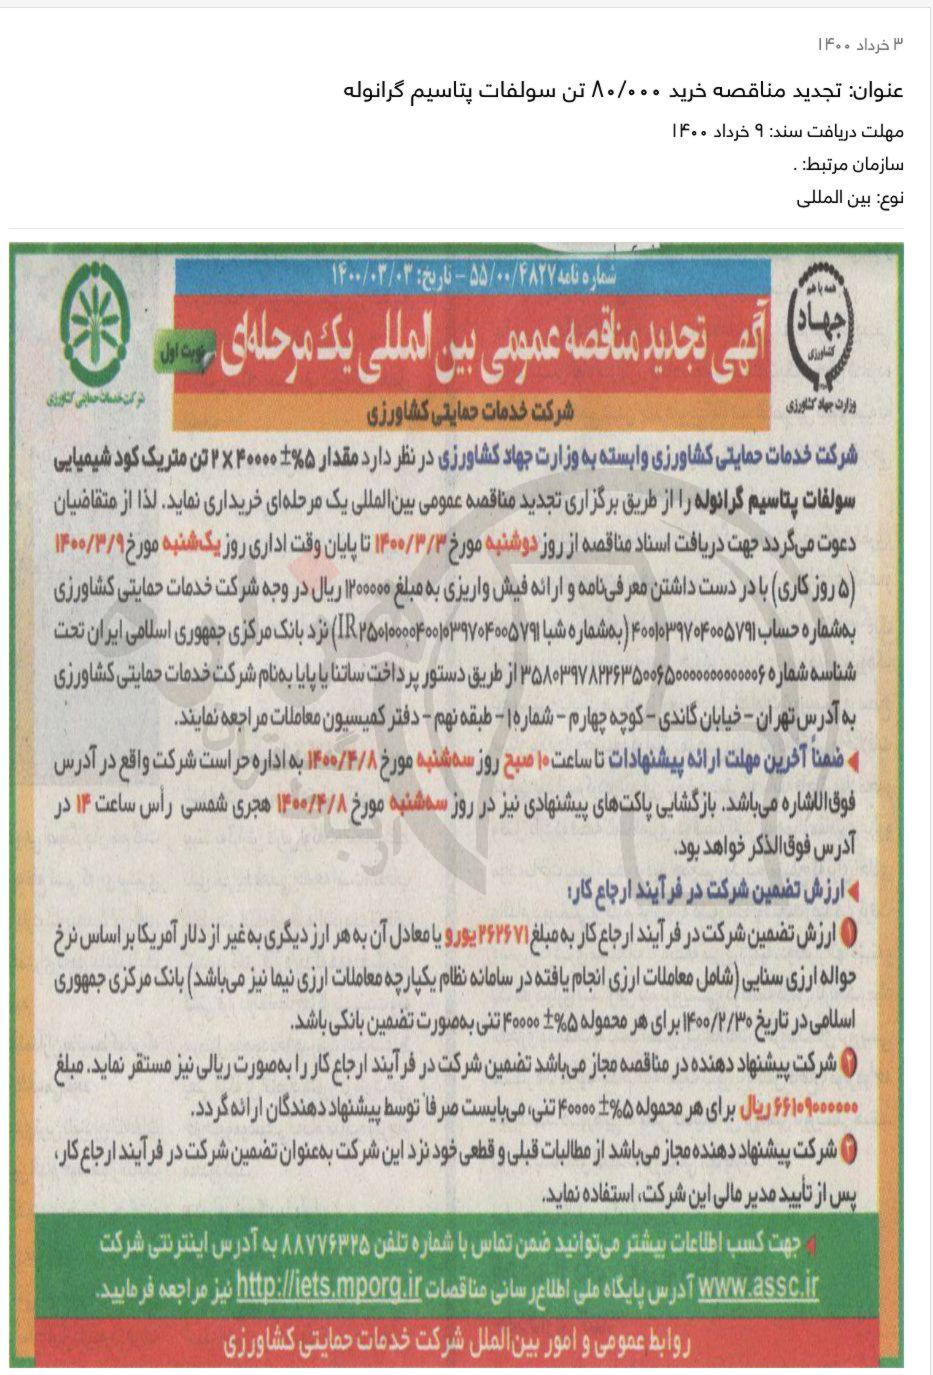 ۳ خرداد ۱۴۰۰
عنوان: تجدید مناقصه خرید ۸۰/۰۰۰ تن سولفات پتاسیم گرانوله
مهلت دریافت سند: ۹ خرداد ۱۴۰۰
سازمان مرتبط: .
نوع: بین المللی
شماره نامه ۵۵/۰۰/۴۸۲۷ - تاریخ: ۱۴۰۰/۰۳/۰۳
همه با هم
جهاد
کشاورزی
وزارت جهاد کشاورزی
آگهی تجدید مناقصه عمومی بین المللی یک مرحله‌ای
نوبت اول
شرکت خدمات حمایتی کشاورزی
شرکت خدمات حمایتی کشاورزی
شرکت خدمات حمایتی کشاورزی وابسته به وزارت جهاد کشاورزی در نظر دارد مقدار ۵%± ۴۰۰۰۰ × ۲ تن متریک کود شیمیایی
سولفات پتاسیم گرانوله را از طریق برگزاری تجدید مناقصه عمومی بین‌المللی یک مرحله‌ای خریداری نماید. لذا از متقاضیان
دعوت می‌گردد جهت دریافت اسناد مناقصه از روز دوشنبه مورخ ۱۴۰۰/۳/۳ تا پایان وقت اداری روز یک‌شنبه مورخ ۱۴۰۰/۳/۹
(۵ روز کاری) با در دست داشتن معرفی‌نامه و ارائه فیش واریزی به مبلغ ۱۲۰۰۰۰۰ ریال در وجه شرکت خدمات حمایتی کشاورزی
به‌شماره حساب ۴۰۰۱۰۳۹۷۰۴۰۰۵۷۹۱ (به‌شماره شبا IR۲۵۰۱۰۰۰۰۴۰۰۱۰۳۹۷۰۴۰۰۵۷۹۱) نزد بانک مرکزی جمهوری اسلامی ایران تحت
شناسه شماره ۳۵۸۰۳۹۷۸۲۲۶۳۵۰۰۶۵۰۰۰۰۰۰۰۰۰۰۰۰۶ از طریق دستور پرداخت ساتنا یا پایا به‌نام شرکت خدمات حمایتی کشاورزی
به آدرس تهران - خیابان گاندی - کوچه چهارم - شماره ۱ - طبقه نهم - دفتر کمیسیون معاملات مراجعه نمایند.
ضمناً آخرین مهلت ارائه پیشنهادات تا ساعت ۱۰ صبح روز سه‌شنبه مورخ ۱۴۰۰/۴/۸ به اداره حراست شرکت واقع در آدرس
فوق‌الاشاره می‌باشد. بازگشایی پاکت‌های پیشنهادی نیز در روز سه‌شنبه مورخ ۱۴۰۰/۴/۸ هجری شمسی رأس ساعت ۱۴ در
آدرس فوق‌الذکر خواهد بود.
ارزش تضمین شرکت در فرآیند ارجاع کار:
۱ ارزش تضمین شرکت در فرآیند ارجاع کار به مبلغ ۲۶۲۶۷۱ یورو یا معادل آن به هر ارز دیگری به غیر از دلار آمریکا بر اساس نرخ
حواله ارزی سنایی (شامل معاملات ارزی انجام یافته در سامانه نظام یکپارچه معاملات ارزی نیما نیز می‌باشد) بانک مرکزی جمهوری
اسلامی در تاریخ ۱۴۰۰/۲/۳۰ برای هر محموله ۵%± ۴۰۰۰۰ تنی به‌صورت تضمین بانکی باشد.
۲ شرکت پیشنهاد دهنده در مناقصه مجاز می‌باشد تضمین شرکت در فرآیند ارجاع کار را به‌صورت ریالی نیز مستقر نماید. مبلغ
۶۶۱۰۹۰۰۰۰۰۰ ریال برای هر محموله ۵%± ۴۰۰۰۰ تنی، می‌بایست صرفاً توسط پیشنهاد دهندگان ارائه گردد.
۳ شرکت پیشنهاد دهنده مجاز می‌باشد از مطالبات قبلی و قطعی خود نزد این شرکت به‌عنوان تضمین شرکت در فرآیند ارجاع کار،
پس از تأیید مدیر مالی این شرکت، استفاده نماید.
جهت کسب اطلاعات بیشتر می‌توانید ضمن تماس با شماره تلفن ۸۸۷۷۶۳۲۵ به آدرس اینترنتی شرکت
www.assc.ir آدرس پایگاه ملی اطلاع‌رسانی مناقصات http://iets.mporg.ir نیز مراجعه فرمایید.
روابط عمومی و امور بین‌الملل شرکت خدمات حمایتی کشاورزی